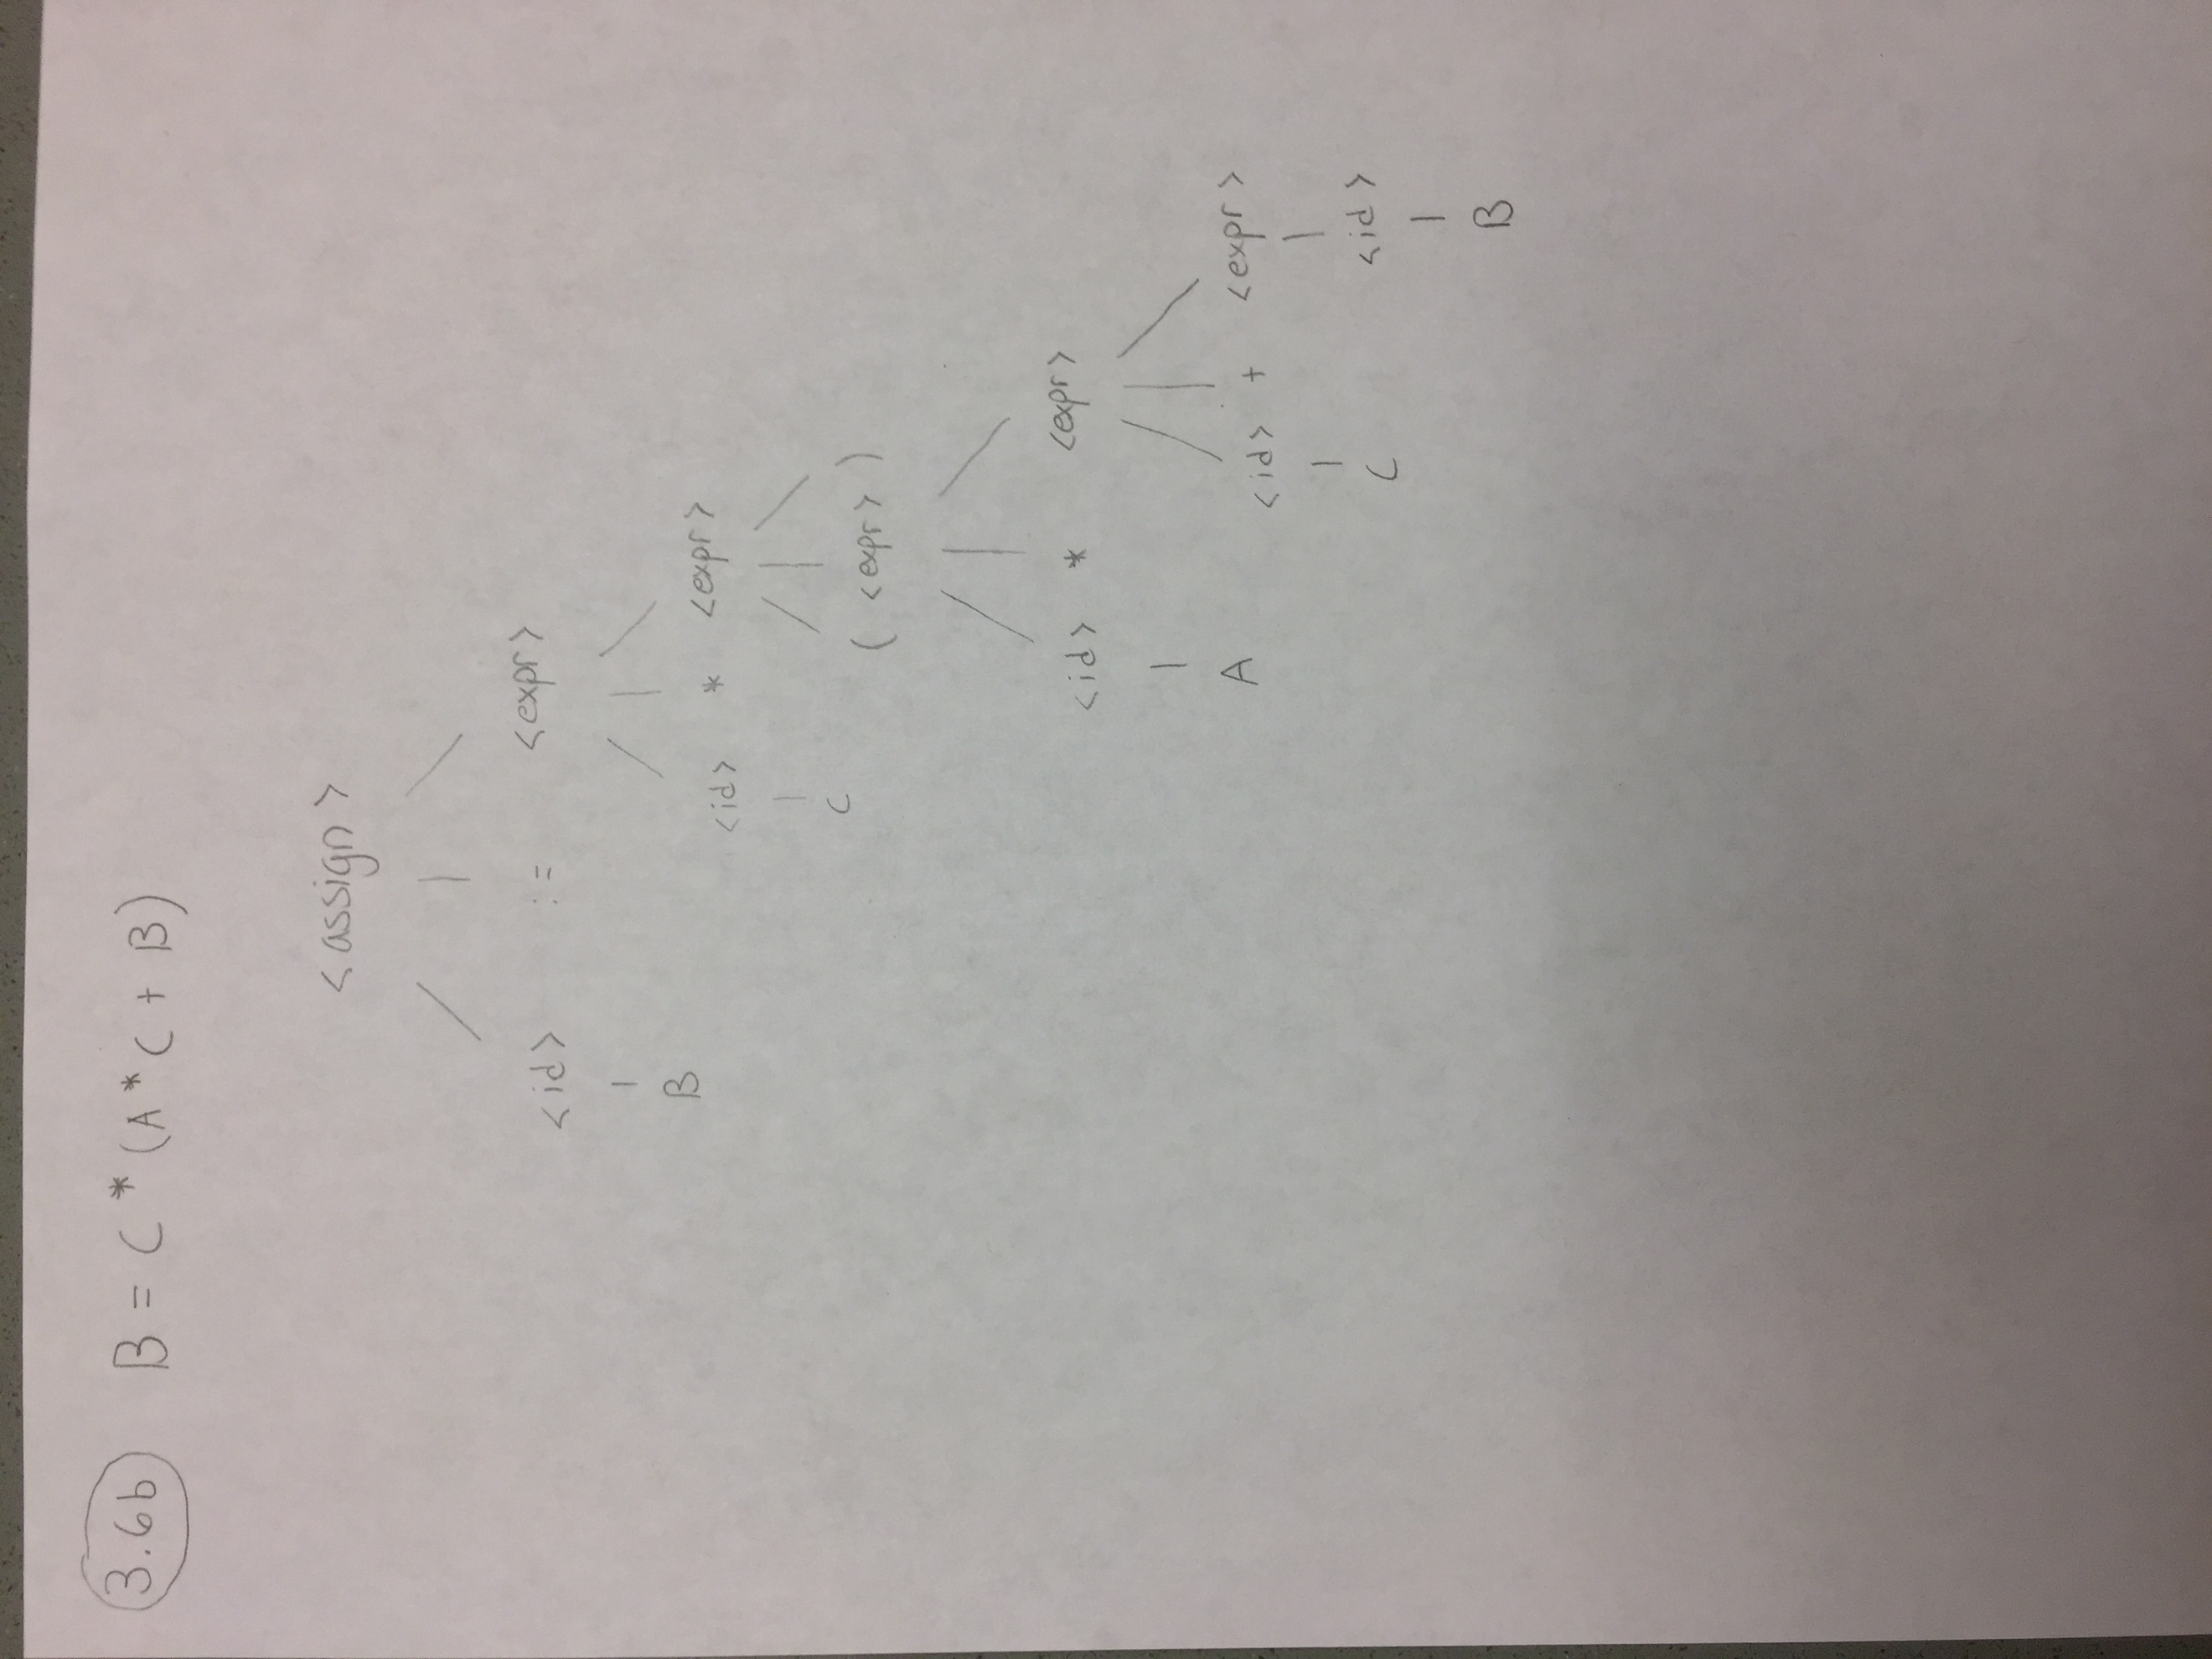 3.6b B = C * (A * C + B)
<assign>
<id> := <expr>
B <id> * <expr>
C ( <expr> )
<id> * <expr>
A <id> + <expr>
C <id>
B